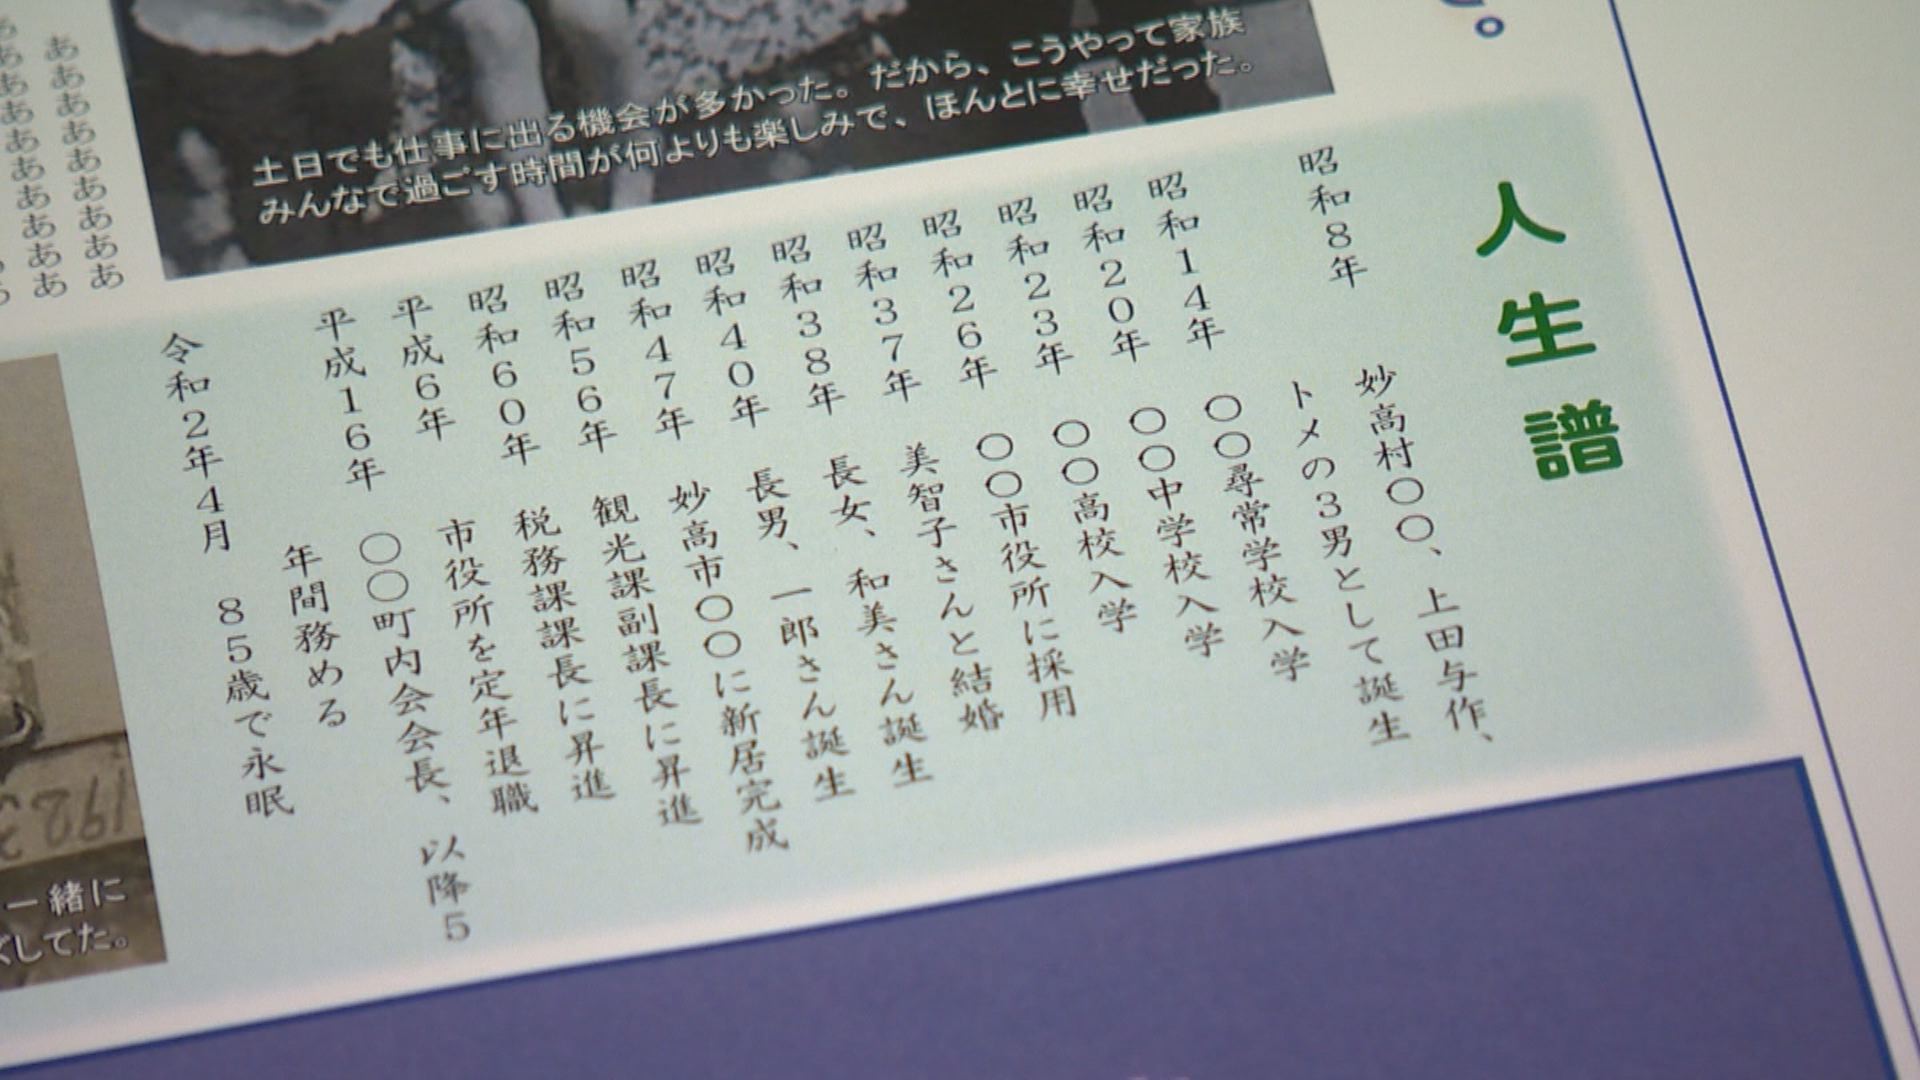 土日でも仕事に出る機会が多かった。だから、こうやって家族
みんなで過ごす時間が何よりも楽しみで、ほんとに幸せだった。
人生譜
昭和8年 妙高村〇〇、上田与作、
トメの3男として誕生
昭和14年 〇〇尋常学校入学
昭和20年 〇〇中学校入学
昭和23年 〇〇高校入学
昭和26年 〇〇市役所に採用
昭和37年 美智子さんと結婚
昭和38年 長女、和美さん誕生
昭和40年 長男、一郎さん誕生
昭和47年 妙高市〇〇に新居完成
昭和56年 観光課副課長に昇進
昭和60年 税務課課長に昇進
平成6年 市役所を定年退職
平成16年 〇〇町内会会長、以降5
年間務める
令和2年4月 85歳で永眠
ああああああああ
ああああああああ
一緒に
してた。